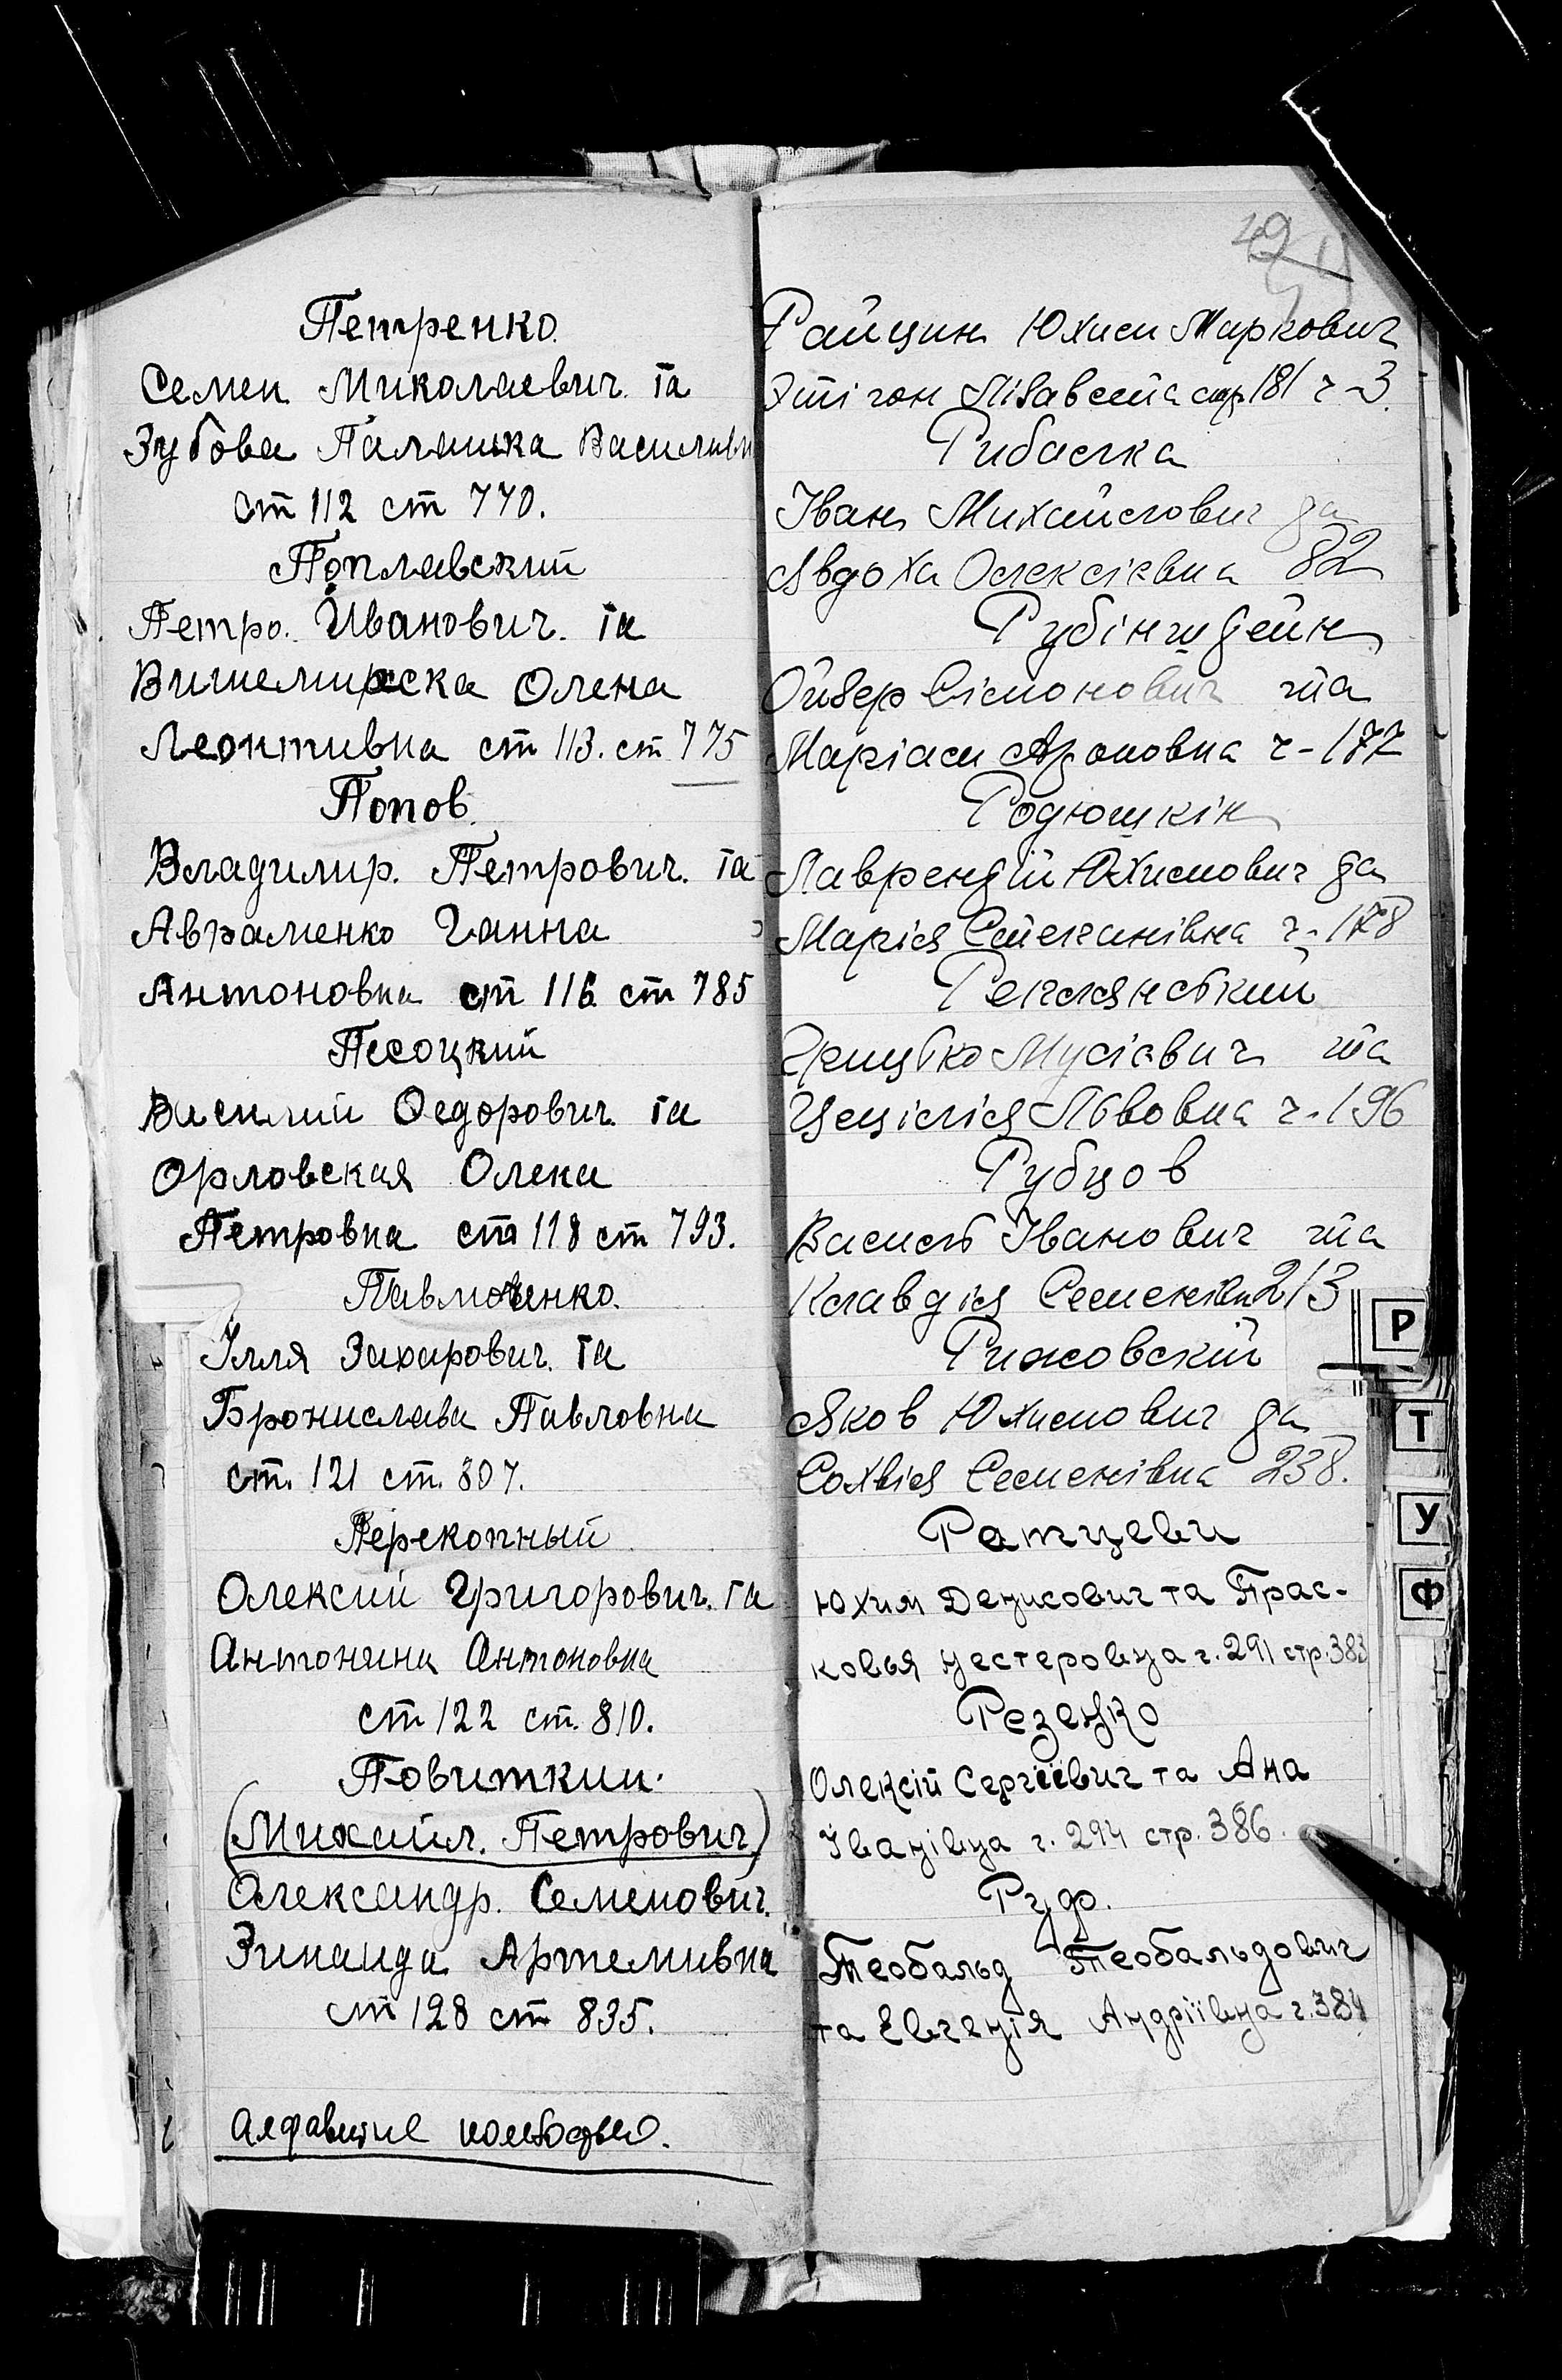 Петренко.
Семен Миколаевич. та
Зубова Палашка Василивн
ст 112 ст 770.
Поплавский
Петро. Иванович. та
Вишемирска Олена
Леонтивна ст 113. ст 775
Попов.
Владимир. Петрович. та
Авраменко Ганна
Антоновна ст 116 ст 785
Песоцкий
Василий Федорович. та
Орловская Олена
Петровна ст 118 ст 793.
Илля Захарович. та
Бронислава Павловна
ст. 121 ст. 807.
Перекопный
Олексий Григорович. та
Антонина Антоновна
ст 122 ст. 810.
Повиткин.
(Михаил. Петрович)
Олександр. Семенович.
Зинаида Артемивна
ст 128 ст 835.
49
Райцин Юхим Маркович
Лізавета стр 181 ч-3.
Рибалка
Іван Михайлович да
Явдоха Олексіевна 82
Рубінштейн
Ойзер Сімонович та
Маріам Ароновна ч-177
Родюшкін
Лаврентій Юхимович да
Марія Степанівна ч-178
Гритько Мусіевич та
Цецілія Львовна ч-196
Рубцов
Василь Іванович та
Клавдія Семенівн 213
Рижовскій
Яков Юхимович да
Софія Семенівна 238.
Ратцеви
Юхим Денисович та Прас-
ковья Нестеровна ч. 291 стр. 383
Резенко
Олексій Сергіевич та Ана
Іванівна ч. 294 стр. 386.
Руф.
Теобальд Теобальдович
та Евгенія Андріївна ч. 384
Р
Т
У
Ф